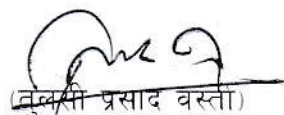 (तुलसी प्रसाद वस्ती)